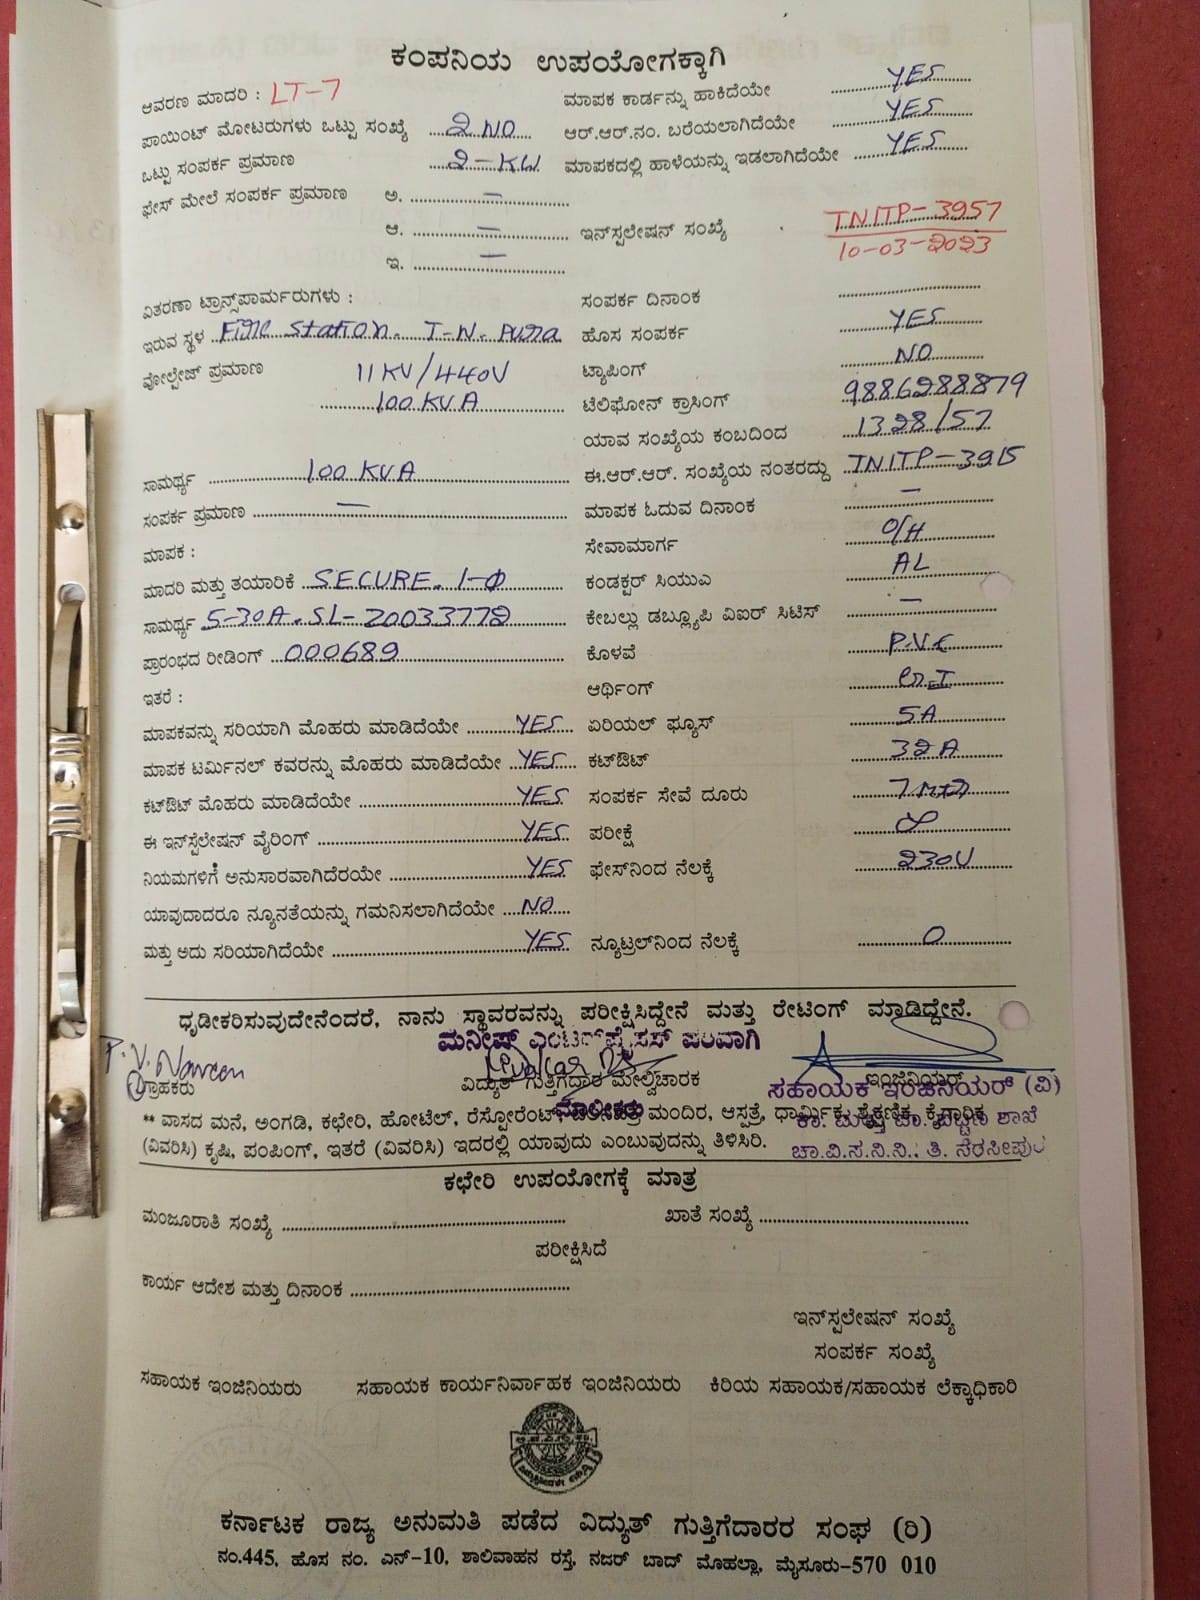 ಕಂಪನಿಯ ಉಪಯೋಗಕ್ಕಾಗಿ
ಆವರಣ ಮಾದರಿ : LT-7 ಮಾಪಕ ಕಾರ್ಡನ್ನು ಹಾಕಿದೆಯೇ YES
ಪಾಯಿಂಟ್ ಮೋಟರುಗಳು ಒಟ್ಟು ಸಂಖ್ಯೆ 2 NO ಆರ್.ಆರ್.ನಂ. ಬರೆಯಲಾಗಿದೆಯೇ YES
ಒಟ್ಟು ಸಂಪರ್ಕ ಪ್ರಮಾಣ 2-KW ಮಾಪಕದಲ್ಲಿ ಹಾಳೆಯನ್ನು ಇಡಲಾಗಿದೆಯೇ YES
ಫೇಸ್ ಮೇಲೆ ಸಂಪರ್ಕ ಪ್ರಮಾಣ ಅ. —
ಆ. — ಇನ್‌ಸ್ಪಲೇಷನ್ ಸಂಖ್ಯೆ TNITP-3957
10-03-2023
ಇ. —
ವಿತರಣಾ ಟ್ರಾನ್ಸ್‌ಪಾರ್ಮರುಗಳು : ಸಂಪರ್ಕ ದಿನಾಂಕ
ಇರುವ ಸ್ಥಳ Fire Station. T-N-Pura ಹೊಸ ಸಂಪರ್ಕ YES
ವೋಲ್ಟೇಜ್ ಪ್ರಮಾಣ 11KV/440V ಟ್ಯಾಪಿಂಗ್ NO
100 KVA ಟೆಲಿಫೋನ್ ಕ್ರಾಸಿಂಗ್ 9886288879
ಯಾವ ಸಂಖ್ಯೆಯ ಕಂಬದಿಂದ 1328/57
ಸಾಮರ್ಥ್ಯ 100 KVA ಈ.ಆರ್.ಆರ್. ಸಂಖ್ಯೆಯ ನಂತರದ್ದು TNITP-3915
ಸಂಪರ್ಕ ಪ್ರಮಾಣ — ಮಾಪಕ ಓದುವ ದಿನಾಂಕ —
ಮಾಪಕ : ಸೇವಾಮಾರ್ಗ O/H
ಮಾದರಿ ಮತ್ತು ತಯಾರಿಕೆ SECURE. 1-Φ ಕಂಡಕ್ಟರ್ ಸಿಯುಎ AL
ಸಾಮರ್ಥ್ಯ 5-30A. SL-20033772 ಕೇಬಲ್ಲು ಡಬ್ಲ್ಯೂಪಿ ವಿಐರ್ ಸಿಟಿಸ್ —
ಪ್ರಾರಂಭದ ರೀಡಿಂಗ್ 000689 ಕೊಳವೆ P.V.C
ಇತರೆ : ಆರ್ಥಿಂಗ್
ಮಾಪಕವನ್ನು ಸರಿಯಾಗಿ ಮೊಹರು ಮಾಡಿದೆಯೇ YES ಏರಿಯಲ್ ಫ್ಯೂಸ್ 5A
ಮಾಪಕ ಟರ್ಮಿನಲ್ ಕವರನ್ನು ಮೊಹರು ಮಾಡಿದೆಯೇ YES ಕಟ್‌ಔಟ್ 32A
ಕಟ್‌ಔಟ್ ಮೊಹರು ಮಾಡಿದೆಯೇ YES ಸಂಪರ್ಕ ಸೇವೆ ದೂರು
ಈ ಇನ್‌ಸ್ಪೆಲೇಷನ್ ವೈರಿಂಗ್ YES ಪರೀಕ್ಷೆ
ನಿಯಮಗಳಿಗೆ ಅನುಸಾರವಾಗಿದೆರಯೇ YES ಫೇಸ್‌ನಿಂದ ನೆಲಕ್ಕೆ 230V
ಯಾವುದಾದರೂ ನ್ಯೂನತೆಯನ್ನು ಗಮನಿಸಲಾಗಿದೆಯೇ NO
ಮತ್ತು ಅದು ಸರಿಯಾಗಿದೆಯೇ YES ನ್ಯೂಟ್ರಲ್‌ನಿಂದ ನೆಲಕ್ಕೆ 0
ಧೃಡೀಕರಿಸುವುದೇನೆಂದರೆ, ನಾನು ಸ್ಥಾವರವನ್ನು ಪರೀಕ್ಷಿಸಿದ್ದೇನೆ ಮತ್ತು ರೇಟಿಂಗ್ ಮಾಡಿದ್ದೇನೆ.
ಮನೀಷ್ ಎಂಟರ್‌ಪ್ರೈಸಸ್ ಪರವಾಗಿ
P. V. Naveen
ಗ್ರಾಹಕರು ವಿದ್ಯುತ್ ಗುತ್ತಿಗೆದಾರ ಮೇಲ್ವಿಚಾರಕ ಇಂಜಿನಿಯರ್
ಸಹಾಯಕ ಇಂಜಿನಿಯರ್ (ವಿ)
ಮಾಲೀಕರು
** ವಾಸದ ಮನೆ, ಅಂಗಡಿ, ಕಛೇರಿ, ಹೋಟೆಲ್, ರೆಸ್ಟೋರೆಂಟ್, ಮಂದಿರ, ಆಸ್ಪತ್ರೆ, ಧಾರ್ಮಿಕ, ಶೈಕ್ಷಣಿಕ, ಕೈಗಾರಿಕ
(ವಿವರಿಸಿ) ಕೃಷಿ, ಪಂಪಿಂಗ್, ಇತರೆ (ವಿವರಿಸಿ) ಇದರಲ್ಲಿ ಯಾವುದು ಎಂಬುವುದನ್ನು ತಿಳಿಸಿರಿ.
ಚಾ.ವಿ.ಸ.ನಿ.ನಿ., ತಿ. ನರಸೀಪುರ
ಕಛೇರಿ ಉಪಯೋಗಕ್ಕೆ ಮಾತ್ರ
ಮಂಜೂರಾತಿ ಸಂಖ್ಯೆ ಖಾತೆ ಸಂಖ್ಯೆ
ಪರೀಕ್ಷಿಸಿದೆ
ಕಾರ್ಯ ಆದೇಶ ಮತ್ತು ದಿನಾಂಕ
ಇನ್‌ಸ್ಪಲೇಷನ್ ಸಂಖ್ಯೆ
ಸಂಪರ್ಕ ಸಂಖ್ಯೆ
ಸಹಾಯಕ ಇಂಜಿನಿಯರು ಸಹಾಯಕ ಕಾರ್ಯನಿರ್ವಾಹಕ ಇಂಜಿನಿಯರು ಕಿರಿಯ ಸಹಾಯಕ/ಸಹಾಯಕ ಲೆಕ್ಕಾಧಿಕಾರಿ
ಕರ್ನಾಟಕ ರಾಜ್ಯ ಅನುಮತಿ ಪಡೆದ ವಿದ್ಯುತ್ ಗುತ್ತಿಗೆದಾರರ ಸಂಘ (ರಿ)
ನಂ.445, ಹೊಸ ನಂ. ಎನ್-10, ಶಾಲಿವಾಹನ ರಸ್ತೆ, ನಜರ್ ಬಾದ್ ಮೊಹಲ್ಲಾ, ಮೈಸೂರು-570 010